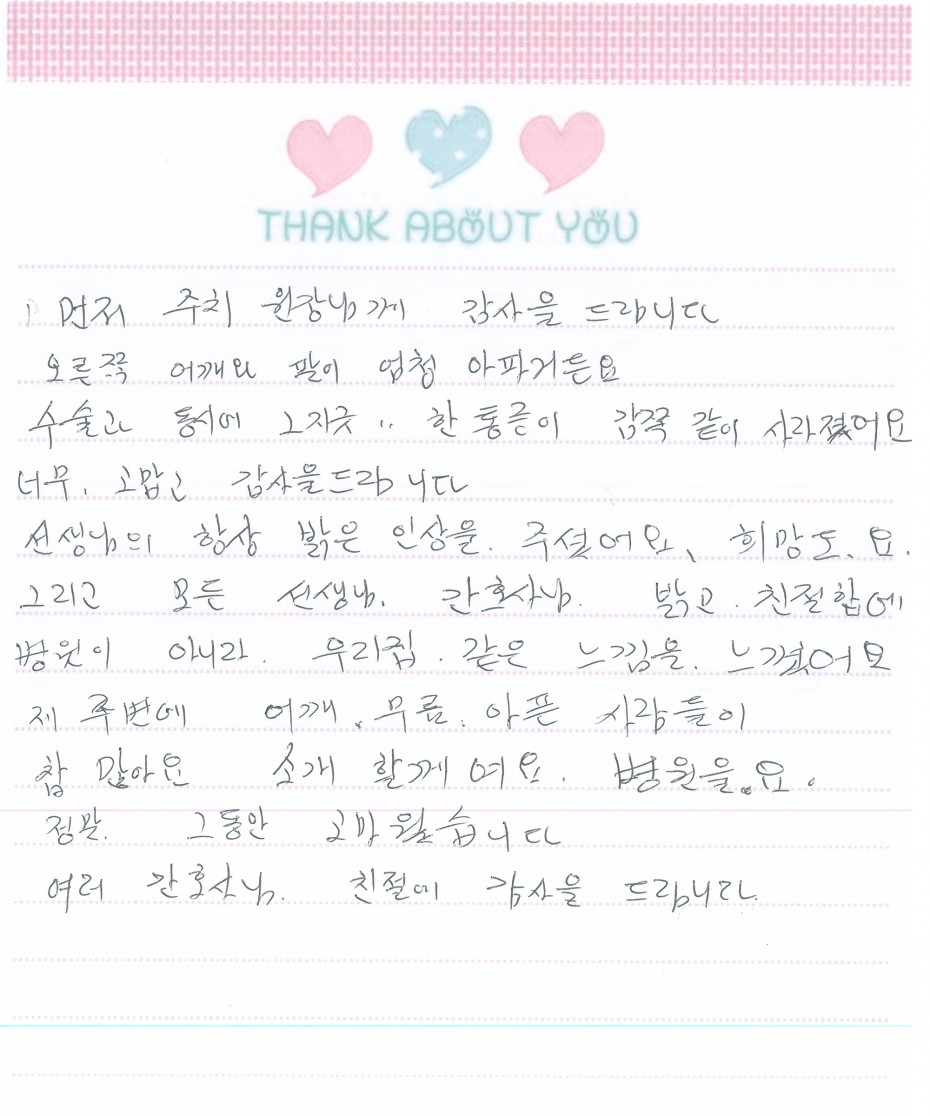 THANK ABOUT YOU
먼저 주치 원장님께 감사을 드립니다
오른쪽 어깨와 팔이 엄청 아파거든요
수술과 동시에 그지긋.. 한 통증이 감쪽 같이 사라졌어요
너무. 고맙고 감사을드립니다
선생님의 항상 밝은 인상을. 주셨어요, 희망도. 요.
그리고 모든 선생님. 간호사님. 밝고. 친절함에
병원이 아니라. 우리집. 같은 느낌을. 느꼈어요
제 주변에 어깨. 무릎. 아픈 사람들이
참 많아요 소개 할께여요. 병원을.요.
정말. 그동안 고마웠습니다
여러 간호사님. 친절에 감사을 드립니다.